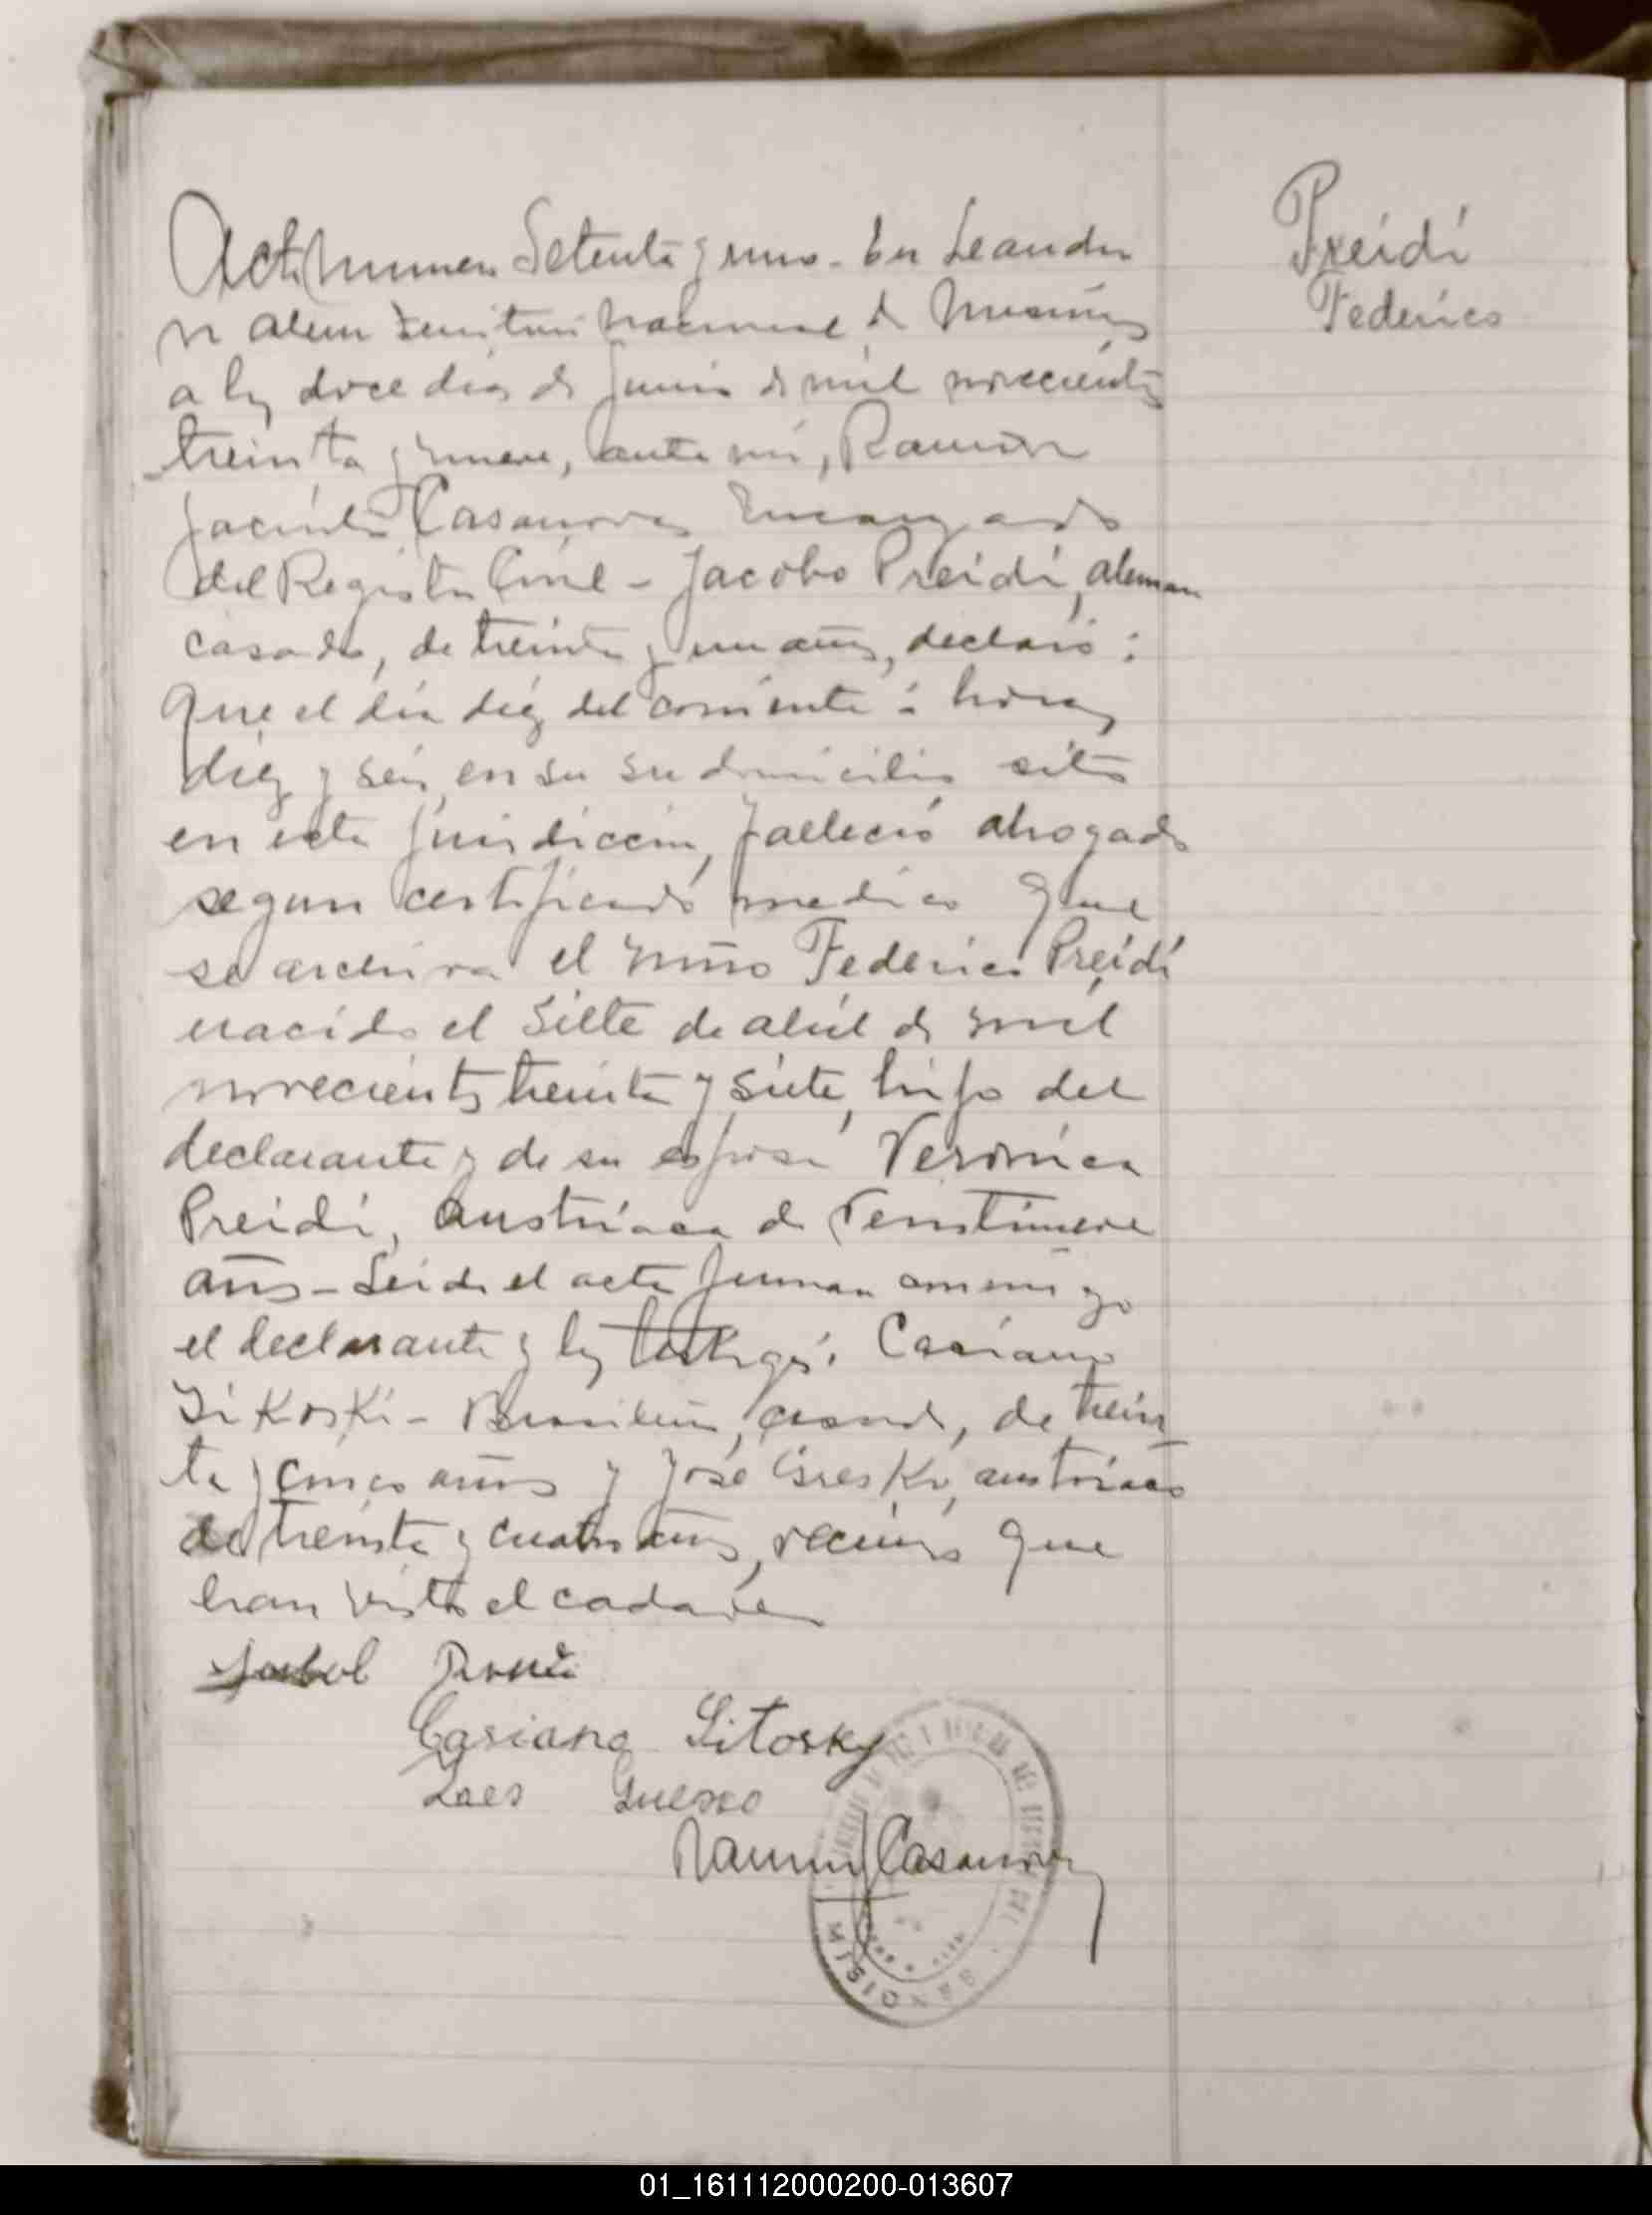 Preidi
Federico
Acta numero Setenta y uno - En Leandro
N Alem Territorio Nacional de Misiones
a los doce dias de Junio de mil novecientos
treinta y nueve, ante mi, Ramón
Jacinto Casanova Encargado
del Registro Civil - Jacobo Preidi, aleman
casado, de treinta y un años, declaró:
Que el dia diez del corriente á horas
diez y seis en su su domicilio sito
en esta jurisdiccion, falleció ahogado
segun certificado medico que
se archiva el niño Federico Preidi
nacido el siete de abril de mil
novecientos treinta y siete, hijo del
declarante y de su esposa Verónica
Preidi, austriaca de veintinueve
años - Leida el acta firman conmigo
el declarante y los testigos: Casiano
Sikoski - Brasileño, casado, de trein
ta y cinco años y José Gresko, austriaco
de treinta y cuatro años, vecinos que
han visto el cadaver
Jakob
Casiano Sitosky
Ramon J Casanova
MISIONES
01_161112000200-013607